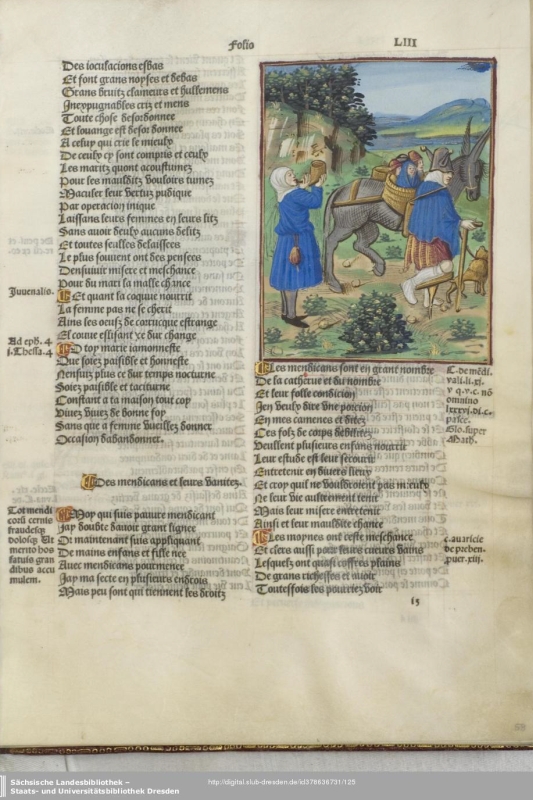 Folio LIII
Des ioculacions esbas
Et font grans noyses et debas
Grans bruitz clameurs et hullemens
Inexpugnables criz et mens
Toute chose desordonnee
Et louange est desordonnee
A celuy qui crie le mieulx
De ceulx cy sont compris et ceulx
Les maritz quont acoustumez
Pour les maulditz vouloirs tumez
Maculer leur vertuz pudique
Par operacion inique
Laissans leurs femmes en leurs litz
Sans auoir deulx aucuns delitz
Et toutes seulles delaissees
Le plus souuent ont des pensees
Densuiuir misere et meschance
Pour du mari la malle chance
Juuenalis.
Et quant la coquue nourrit
La femme pas ne se cherit
Ains les oeufz de carucque estrange
Et couue essisant ce dur change
Ad eph. 4
i. Thessa. 4
O toy marie iamonneste
Que soiez paisible et honneste
Nensuiz plus ce dur temps nocturne
Soiez paisible et taciturne
Constant a ta maison tout coy
Viuez viuez de bonne foy
Sans que a femme vueillez donner
Occasion dabandonner.
Des mendicans et leurs vanitez.
Tot mendi
cosū cernis
fraudesqz
dolosqz Ut
mento hos
fatuis gran
dibus accu
mulem.
Moy qui suis pauure mendicant
Jay doubte dauoir grant lignee
Or maintenant suis appliquant
De mains enfans et fille nee
Auec mendicans pourmenee
Jay ma secte en plusieurs endrois
Mais peu sont qui tiennent les droitz
Les mendicans sont en grant nombre
De la catherue et du nombre
Et leur folle condicion
Jen veulx dire vne porcion
En mes camenes et ditez
Ces folz de corps debilitez
Veullent plusieurs enfans nourrir
Leur estude est leur secourir
Entretenir en diuers lieux
Et croy quil ne vouldroient pas mieulx
Ne leur vie aultrement tenir
Mais leur misere entretenir
Ainsi et leur mauldite chance
C. de mēdi.
vali. li. xi.
v q. v. c. nō
omnino
lxxxvi. di. c.
pasce.
Glo. super
Math.
Les moynes ont ceste meschance
Et clers aussi pour leurs cueurs vains
Lesquelz ont quasi coffres plains
De grans richesses et auoir
Toutesfois les pourriez voir
c. auaricie
de preben.
puer. xiii.
i5
Sächsische Landesbibliothek –
Staats- und Universitätsbibliothek Dresden
http://digital.slub-dresden.de/id378636731/125